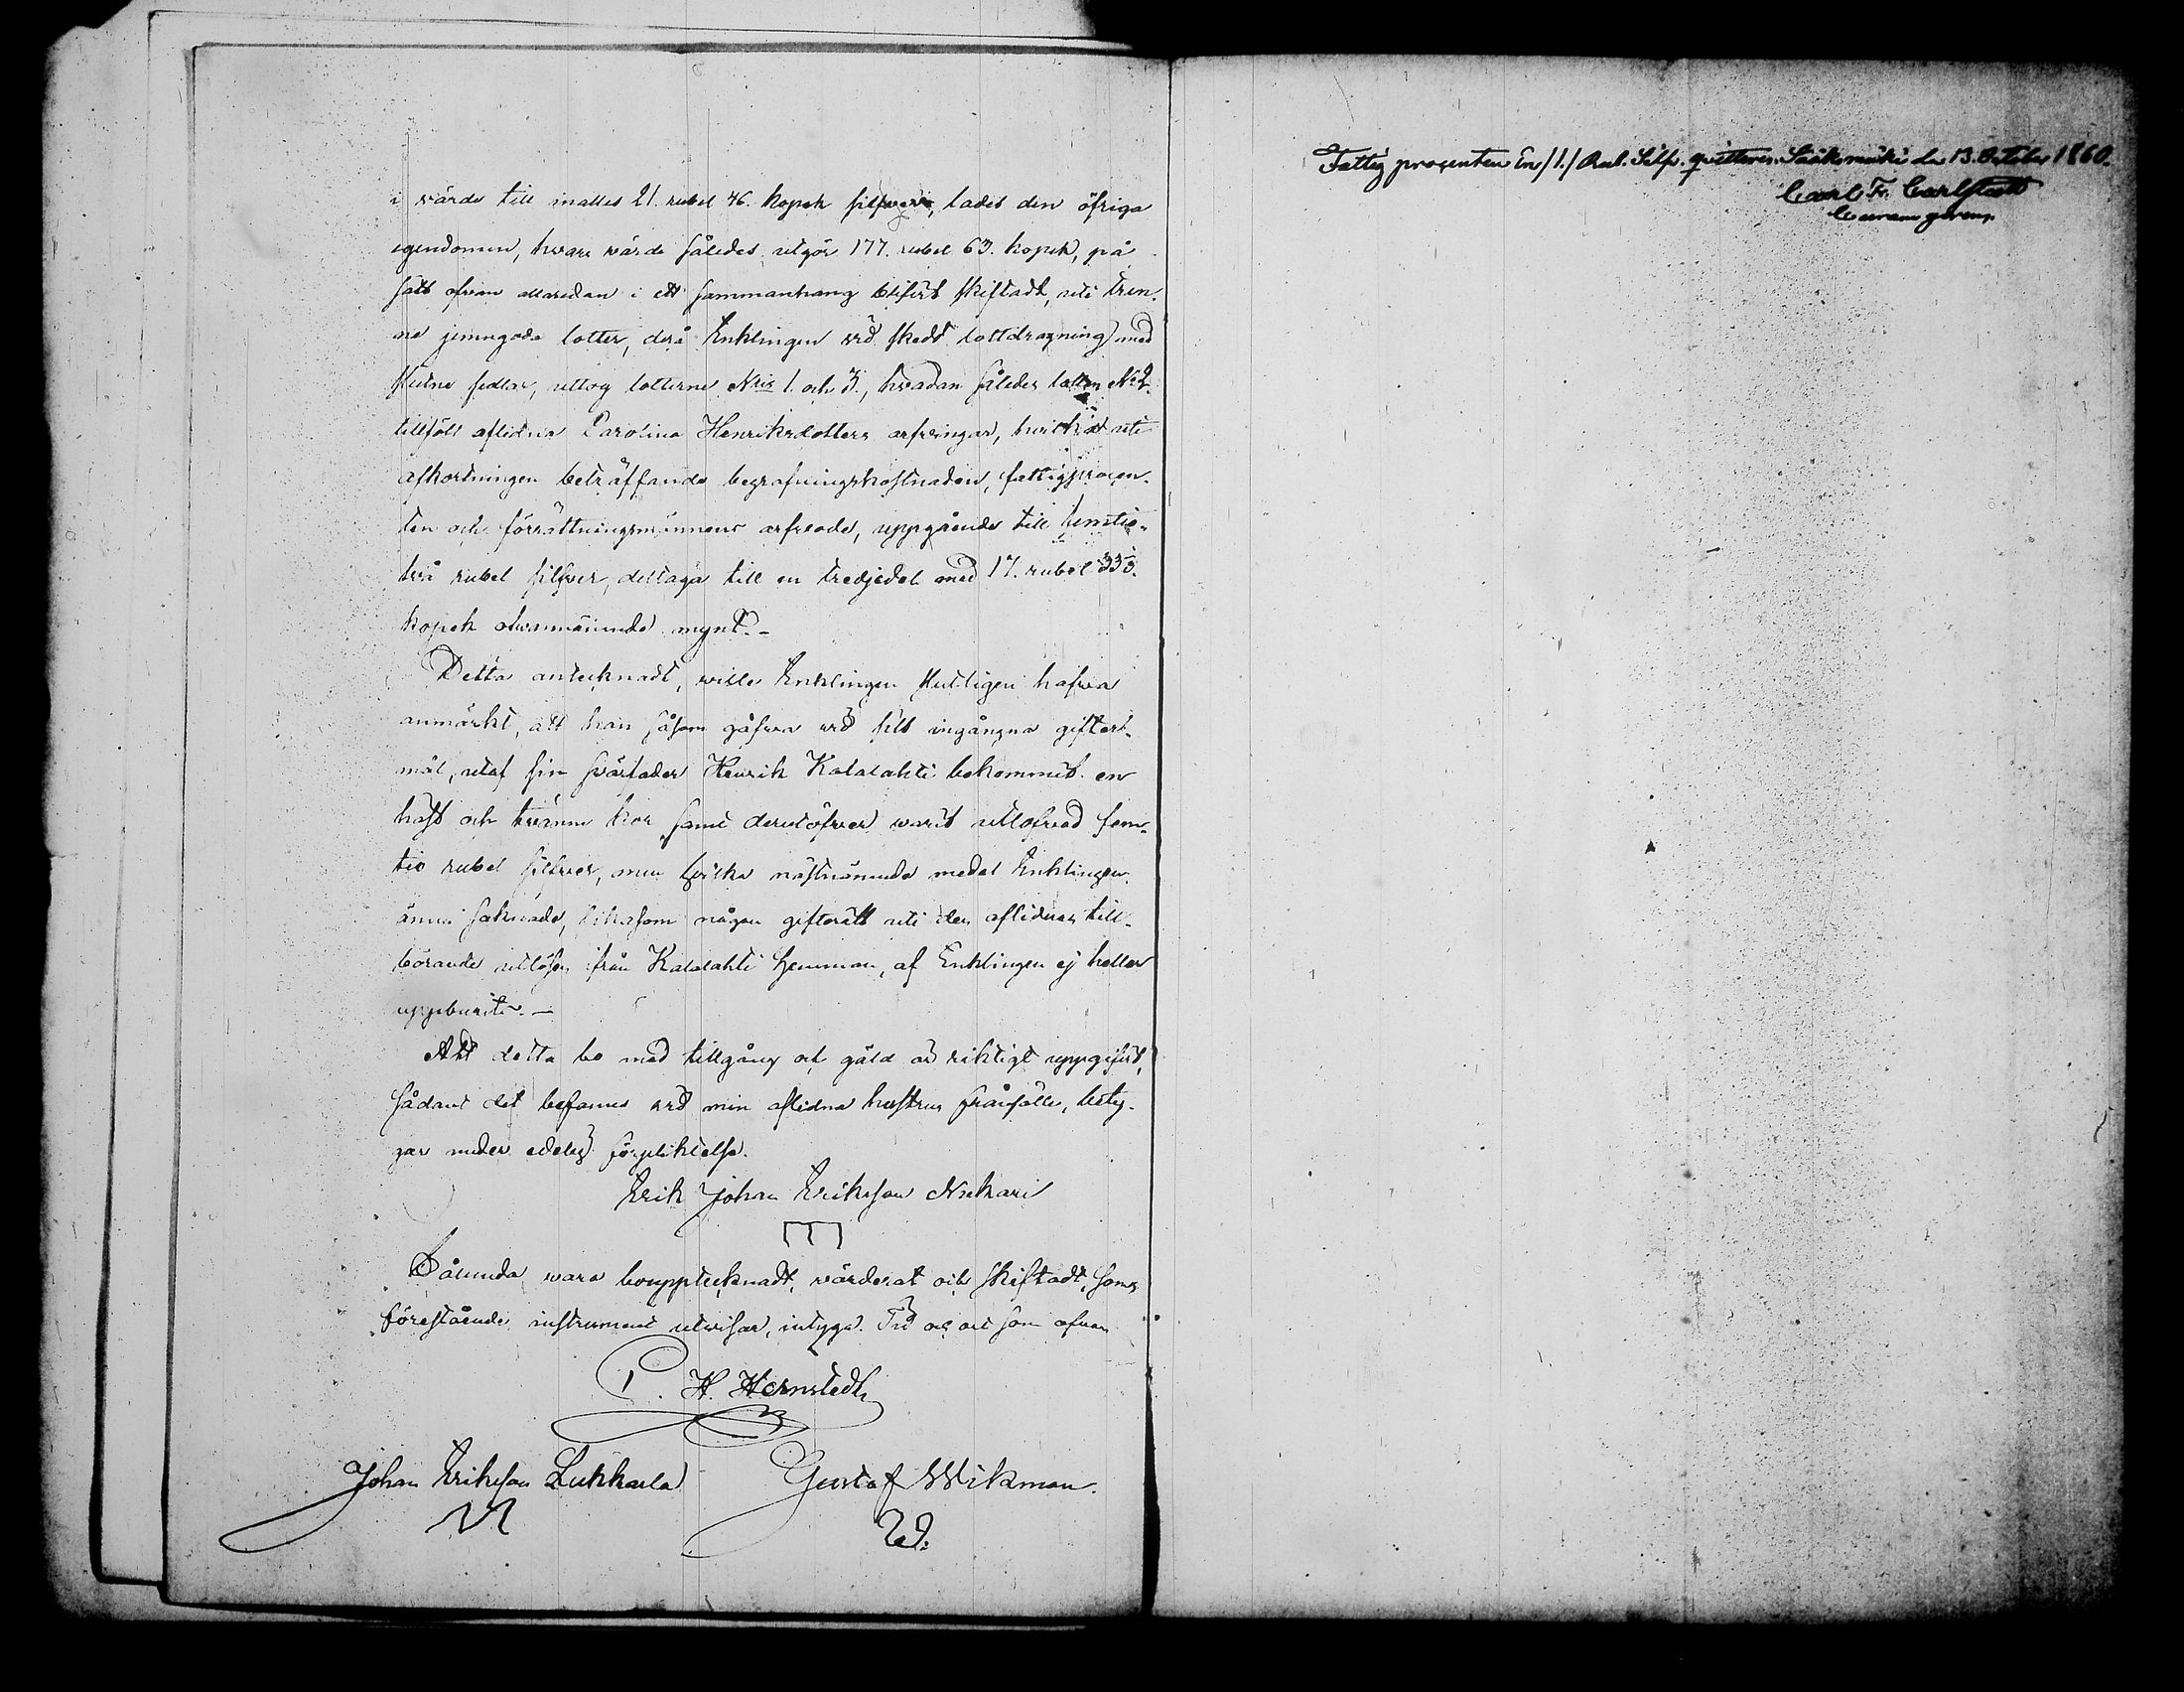 i värde till inalles 21. rubel 46. kopek silfver, lades den öfriga
egendomen, hvars värde således utgör 177. rubel 63. kopek, på
sätt ofvan i ett sammanhang blifvit skiftadt, uti tren-
ne jemngoda lotter, derå Enklingen vid skedd lottdragning med
slutne sedlar, uttog lotterne N:ris 1. och 3., hvadan således lotten N:o 2.
tillföll aflidna Carolina Henriksdotters arfvingar, hvilka uti
afkortningen beträffande begrafningskostnaden, fattigprocen-
ten och förrättningsmännens arfvode, uppgående till femtio-
två rubel silfver, deltaga till en tredjedel med 17. rubel 33⅓.
kopek ofvannämnde mynt.-
Detta antecknadt, ville Enklingen slutligen hafva
anmärkt, att han såsom gåfva vid sitt ingångna gifter-
mål, utaf sin svärfader Henrik Kalalahti bekommit en
häst och tvänne kor samt derutöfver varit utlofvad fem-
tio rubel silfver, men hvilka nästnämnde medel Enklingen
ännu saknade, likasom någon giftorätt uti den aflidnas till-
börande utlösen från Kalalahti hemman, af Enklingen ej heller
uppburits.-
Att detta bo med tillgång och gäld är riktigt uppgifvit,
sådant det befanns vid min aflidna hustrus frånfälle, bety-
gar under edelig förpliktelse.
Erik Johan Eriksson Niekari
Sålunda vara bouppteknadt, värderat och skiftadt, som
förestående instrument utvisar, intyga. Tid och ort som ofvan
C. H. Hernstedt
Johan Eriksson Lukkarla Gustaf Wikman.
W.
Fattig procenten En /1./ Rub. Silfv. qvitteras. Sääksmäki den 13. October 1860.
Carl Fr. Carlstedt